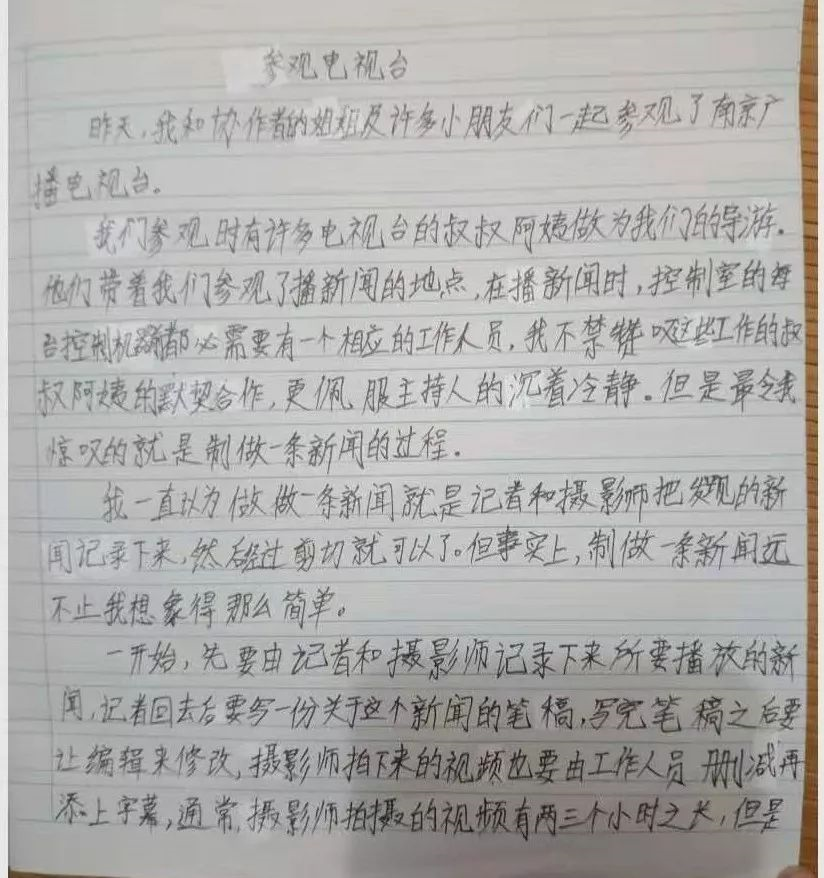 参观电视台
昨天,我和协作者的姐姐及许多小朋友们一起参观了南京广
播电视台。
我们参观时有许多电视台的叔叔阿姨做为我们的导游。
他们带着我们参观了播新闻的地点,在播新闻时,控制室的每
台控制机器都必需要有一个相应的工作人员,我不禁赞叹这些工作的叔
叔阿姨的默契合作,更佩服主持人的沉着冷静。但是最令我
惊叹的就是制做一条新闻的过程。
我一直以为做做一条新闻就是记者和摄影师把发现的新
闻记录下来,然后经过剪切就可以了。但事实上,制做一条新闻远
不止我想象得那么简单。
一开始,先要由记者和摄影师记录下来所要播放的新
闻,记者回去后要写一份关于这个新闻的笔稿,写完笔稿之后要
让编辑来修改,摄影师拍下来的视频也要由工作人员删减再
添上字幕,通常,摄影师拍摄的视频有两三个小时之长,但是